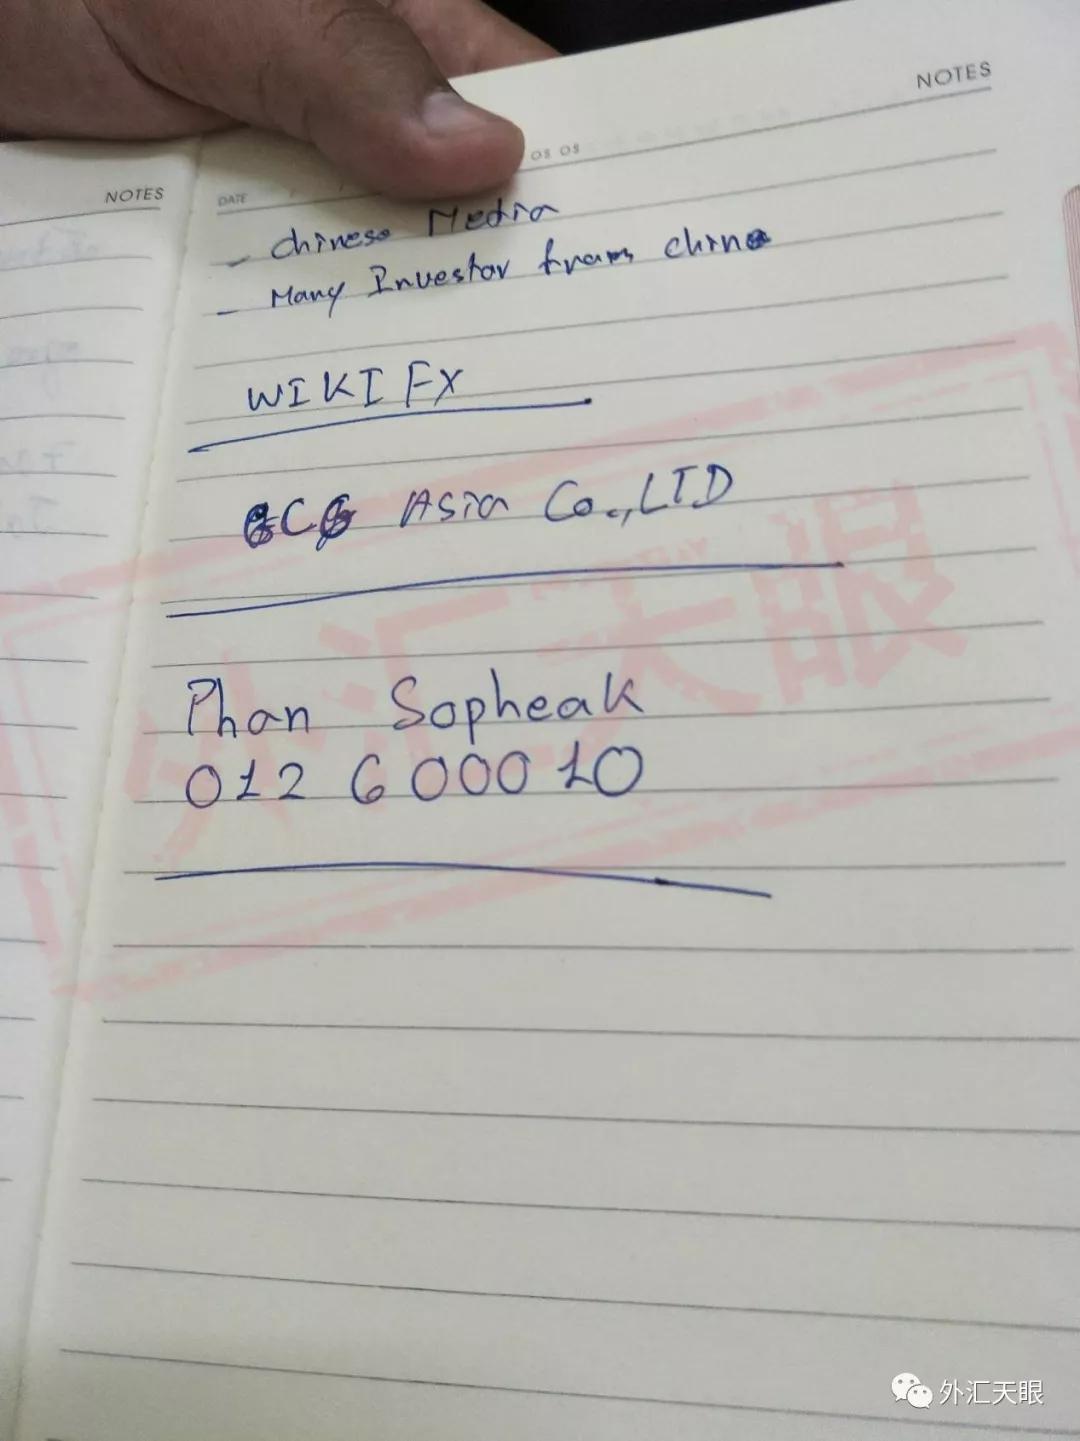 NOTES
NOTES
DATE
OS OS
- Chinese Media
- Many Investor from China
WIKI FX
Asia Co.,LTD
Phan Sopheak
012 6 000 10
外汇天眼
外汇天眼